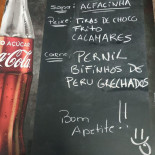 Sopa: ALFACINHA
Peixe: TIRAS DE CHOCO
FRITO
CALAMARES
Carne: PERNIL
BIFINHOS DE
PERU GRELHADOS
Bom
Apetite!!
AÇÚCAR
Coca-Cola